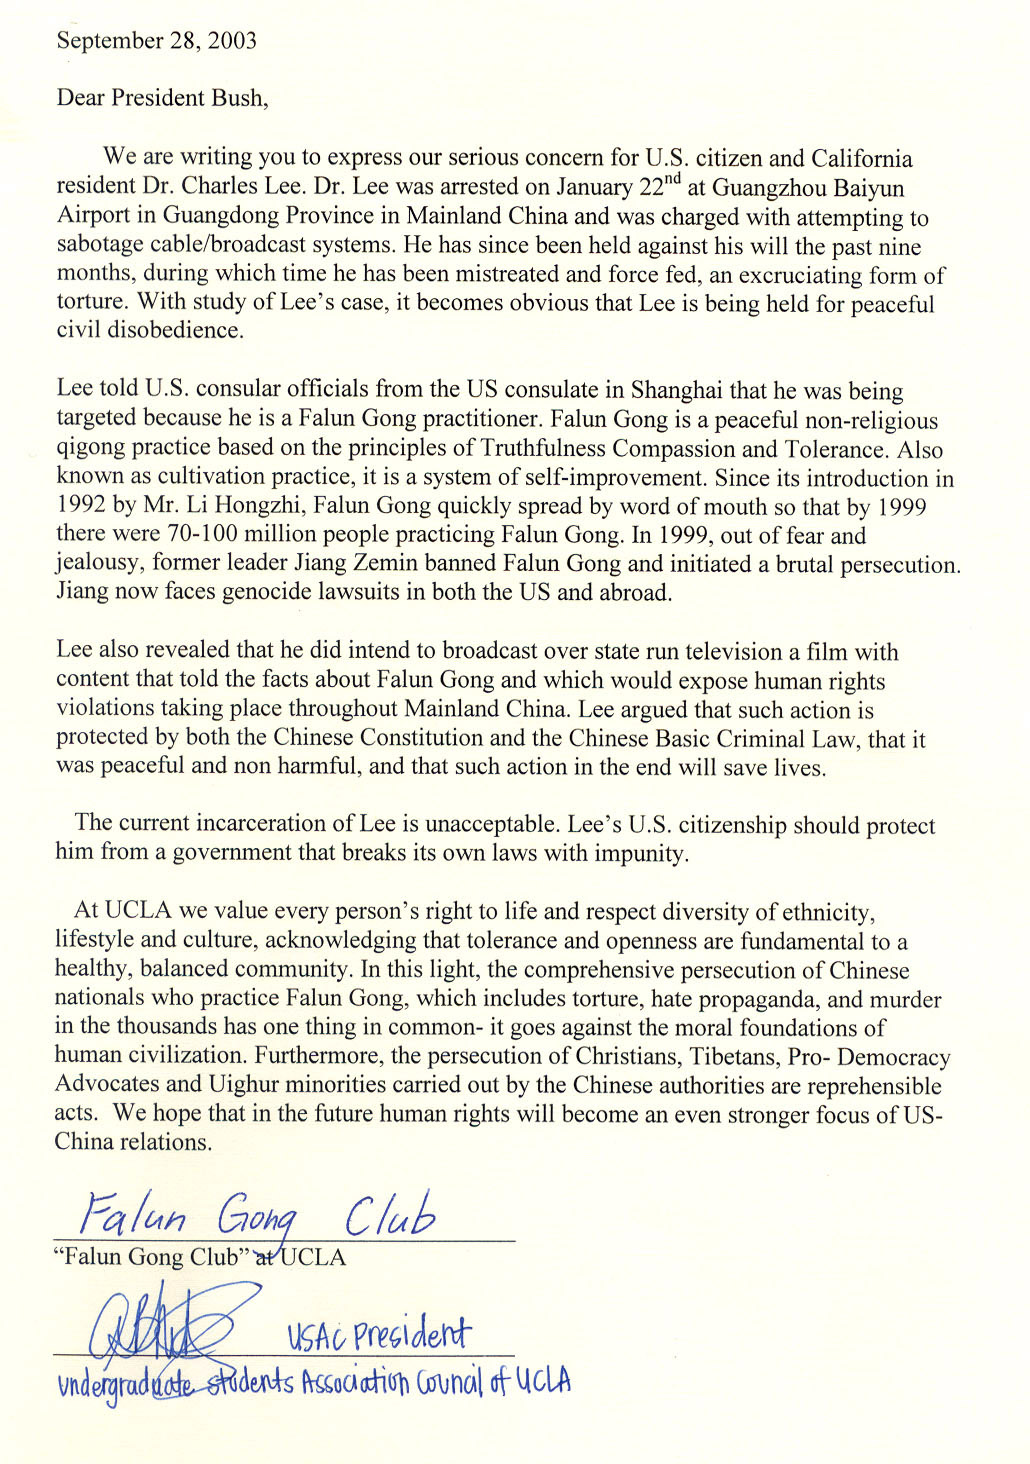 September 28, 2003
Dear President Bush,
We are writing you to express our serious concern for U.S. citizen and California
resident Dr. Charles Lee. Dr. Lee was arrested on January 22nd at Guangzhou Baiyun
Airport in Guangdong Province in Mainland China and was charged with attempting to
sabotage cable/broadcast systems. He has since been held against his will the past nine
months, during which time he has been mistreated and force fed, an excruciating form of
torture. With study of Lee's case, it becomes obvious that Lee is being held for peaceful
civil disobedience.
Lee told U.S. consular officials from the US consulate in Shanghai that he was being
targeted because he is a Falun Gong practitioner. Falun Gong is a peaceful non-religious
qigong practice based on the principles of Truthfulness Compassion and Tolerance. Also
known as cultivation practice, it is a system of self-improvement. Since its introduction in
1992 by Mr. Li Hongzhi, Falun Gong quickly spread by word of mouth so that by 1999
there were 70-100 million people practicing Falun Gong. In 1999, out of fear and
jealousy, former leader Jiang Zemin banned Falun Gong and initiated a brutal persecution.
Jiang now faces genocide lawsuits in both the US and abroad.
Lee also revealed that he did intend to broadcast over state run television a film with
content that told the facts about Falun Gong and which would expose human rights
violations taking place throughout Mainland China. Lee argued that such action is
protected by both the Chinese Constitution and the Chinese Basic Criminal Law, that it
was peaceful and non harmful, and that such action in the end will save lives.
The current incarceration of Lee is unacceptable. Lee's U.S. citizenship should protect
him from a government that breaks its own laws with impunity.
At UCLA we value every person's right to life and respect diversity of ethnicity,
lifestyle and culture, acknowledging that tolerance and openness are fundamental to a
healthy, balanced community. In this light, the comprehensive persecution of Chinese
nationals who practice Falun Gong, which includes torture, hate propaganda, and murder
in the thousands has one thing in common- it goes against the moral foundations of
human civilization. Furthermore, the persecution of Christians, Tibetans, Pro- Democracy
Advocates and Uighur minorities carried out by the Chinese authorities are reprehensible
acts.  We hope that in the future human rights will become an even stronger focus of US-
China relations.
Falun Gong Club
"Falun Gong Club" at UCLA
USAC President
undergraduate students Association Council of UCLA